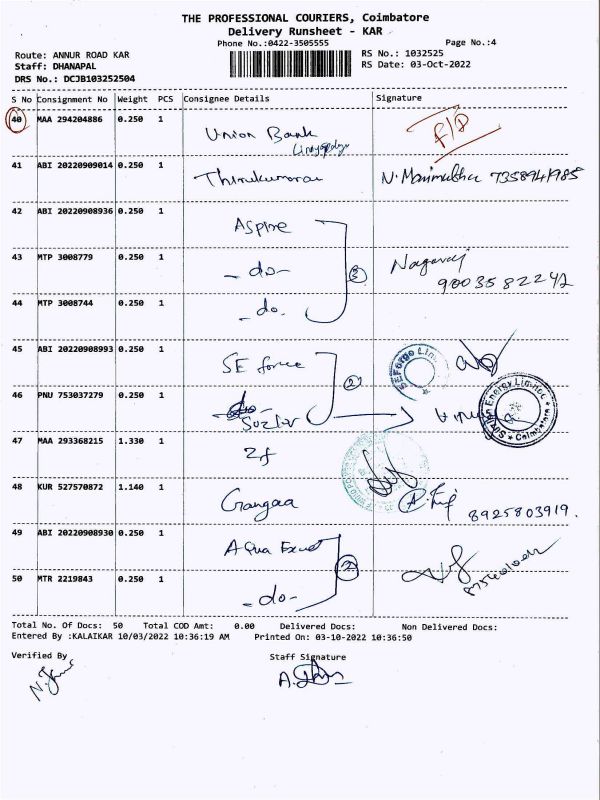 THE PROFESSIONAL COURIERS, Coimbatore
Delivery Runsheet - KAR
Phone No.:0422-3505555 Page No.:4
Route: ANNUR ROAD KAR RS No.: 1032525
Staff: DHANAPAL RS Date: 03-Oct-2022
DRS No.: DCJB103252504
S No Consignment No Weight PCS Consignee Details Signature
40 MAA 294204886 0.250 1 Union Bank F/D
41 ABI 20220909014 0.250 1 Thirukumaran N. Manimutha 7358941985
42 ABI 20220908936 0.250 1 Aspire
43 MTP 3008779 0.250 1 - do - 3 Nagaraj 9003582242
44 MTP 3008744 0.250 1 - do -
45 ABI 20220908993 0.250 1 SE force 2
46 PNU 753037279 0.250 1 Suzlon
47 MAA 293368215 1.330 1 Zf
48 KUR 527570872 1.140 1 Gangaa 8925803919.
49 ABI 20220908930 0.250 1 Aqua 2
50 MTR 2219843 0.250 1 - do -
Total No. Of Docs: 50 Total COD Amt: 0.00 Delivered Docs: Non Delivered Docs:
Entered By :KALAIKAR 10/03/2022 10:36:19 AM Printed On: 03-10-2022 10:36:50
Verified By Staff Signature